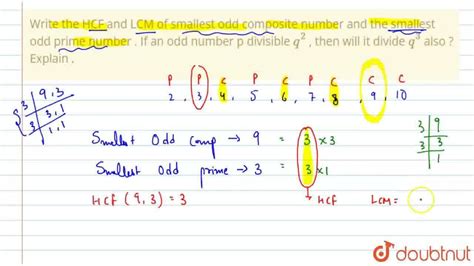 Write the HCF and LCM of smallest odd composite number and the smallest
odd prime number . If an odd number p divisible q² , then will it divide q³ also ?
Explain .
P P C P C P C C C
2 , 3 , 4 , 5 , 6 , 7 , 8 , 9 , 10
3 9, 3
3 3, 1
1, 1
Smallest Odd comp → 9 = 3 × 3
Smallest Odd prime → 3 = 3 × 1
3 9
3 3
1
HCF (9, 3) = 3
→ HCF LCM =
doubtnut